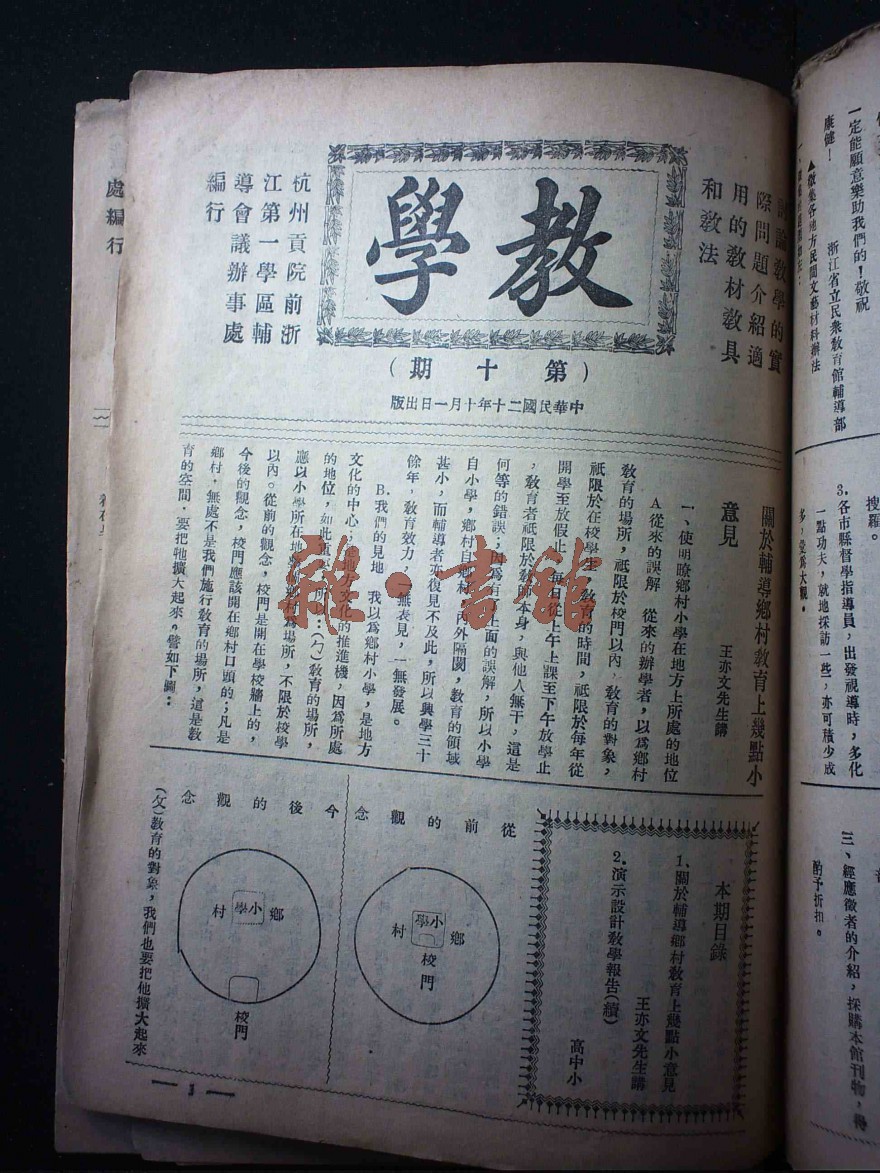 一定能願意樂助我們的！敬祝
康健！
浙江省立民衆敎育館輔導部
▲徵集各地方民間文藝材料辦法
搜羅。
3.各市縣督學指導員，出發視導時，多化
一點功夫，就地採訪一些，亦可積少成
多，蔚爲大觀。
三、經應徵者的介紹，採購本館刊物，得
酌予折扣。
討論敎學的實
際問題介紹適
用的敎材敎具
和敎法
教學
（第十期）
中華民國二十年十月一日出版
杭州貢院前浙
江第一學區輔
導會議辦事處
編行
關於輔導鄉村敎育上幾點小
意見
王亦文先生講
一、使明瞭鄉村小學在地方上所處的地位
A從來的誤解　從來的辦學者，以爲鄉村
敎育的場所，祇限於校門以內，敎育的對象，
祇限於在校學生，敎育的時間，祇限於每年從
開學至放假止，每日從上午上課至下午放學止
，敎育者祇限於敎師本身，與他人無干，這是
何等的錯誤；因爲有了上面的誤解，所以小學
自小學，鄉村自鄉村，內外隔閡，敎育的領域
甚小，而輔導者亦復見不及此，所以興學三十
餘年，敎育效力，一無表見，一無發展。
B.我們的見地　我以爲鄉村小學，是地方
文化的中心；是地方文化的推進機，因爲所處
的地位，如此重要，所以：(ㄅ)敎育的場所，
應以小學所在地的鄉村爲場所，不限於校學
以內。從前的觀念，校門是開在學校牆上的，
今後的觀念，校門應該開在鄉村口頭的；凡是
鄉村，無處不是我們施行敎育的場所，這是敎
育的空間，要把牠擴大起來。譬如下圖：
本期目錄
1.關於輔導鄉村敎育上幾點小意見
王亦文先生講
2.演示設計敎學報告(續)
高中小
從前的觀念
鄉村
小學
校門
今後的觀念
鄉村
小學
校門
(ㄆ)敎育的對象，我們也要把他擴大起來
— 3 —
處編行
雜·書館